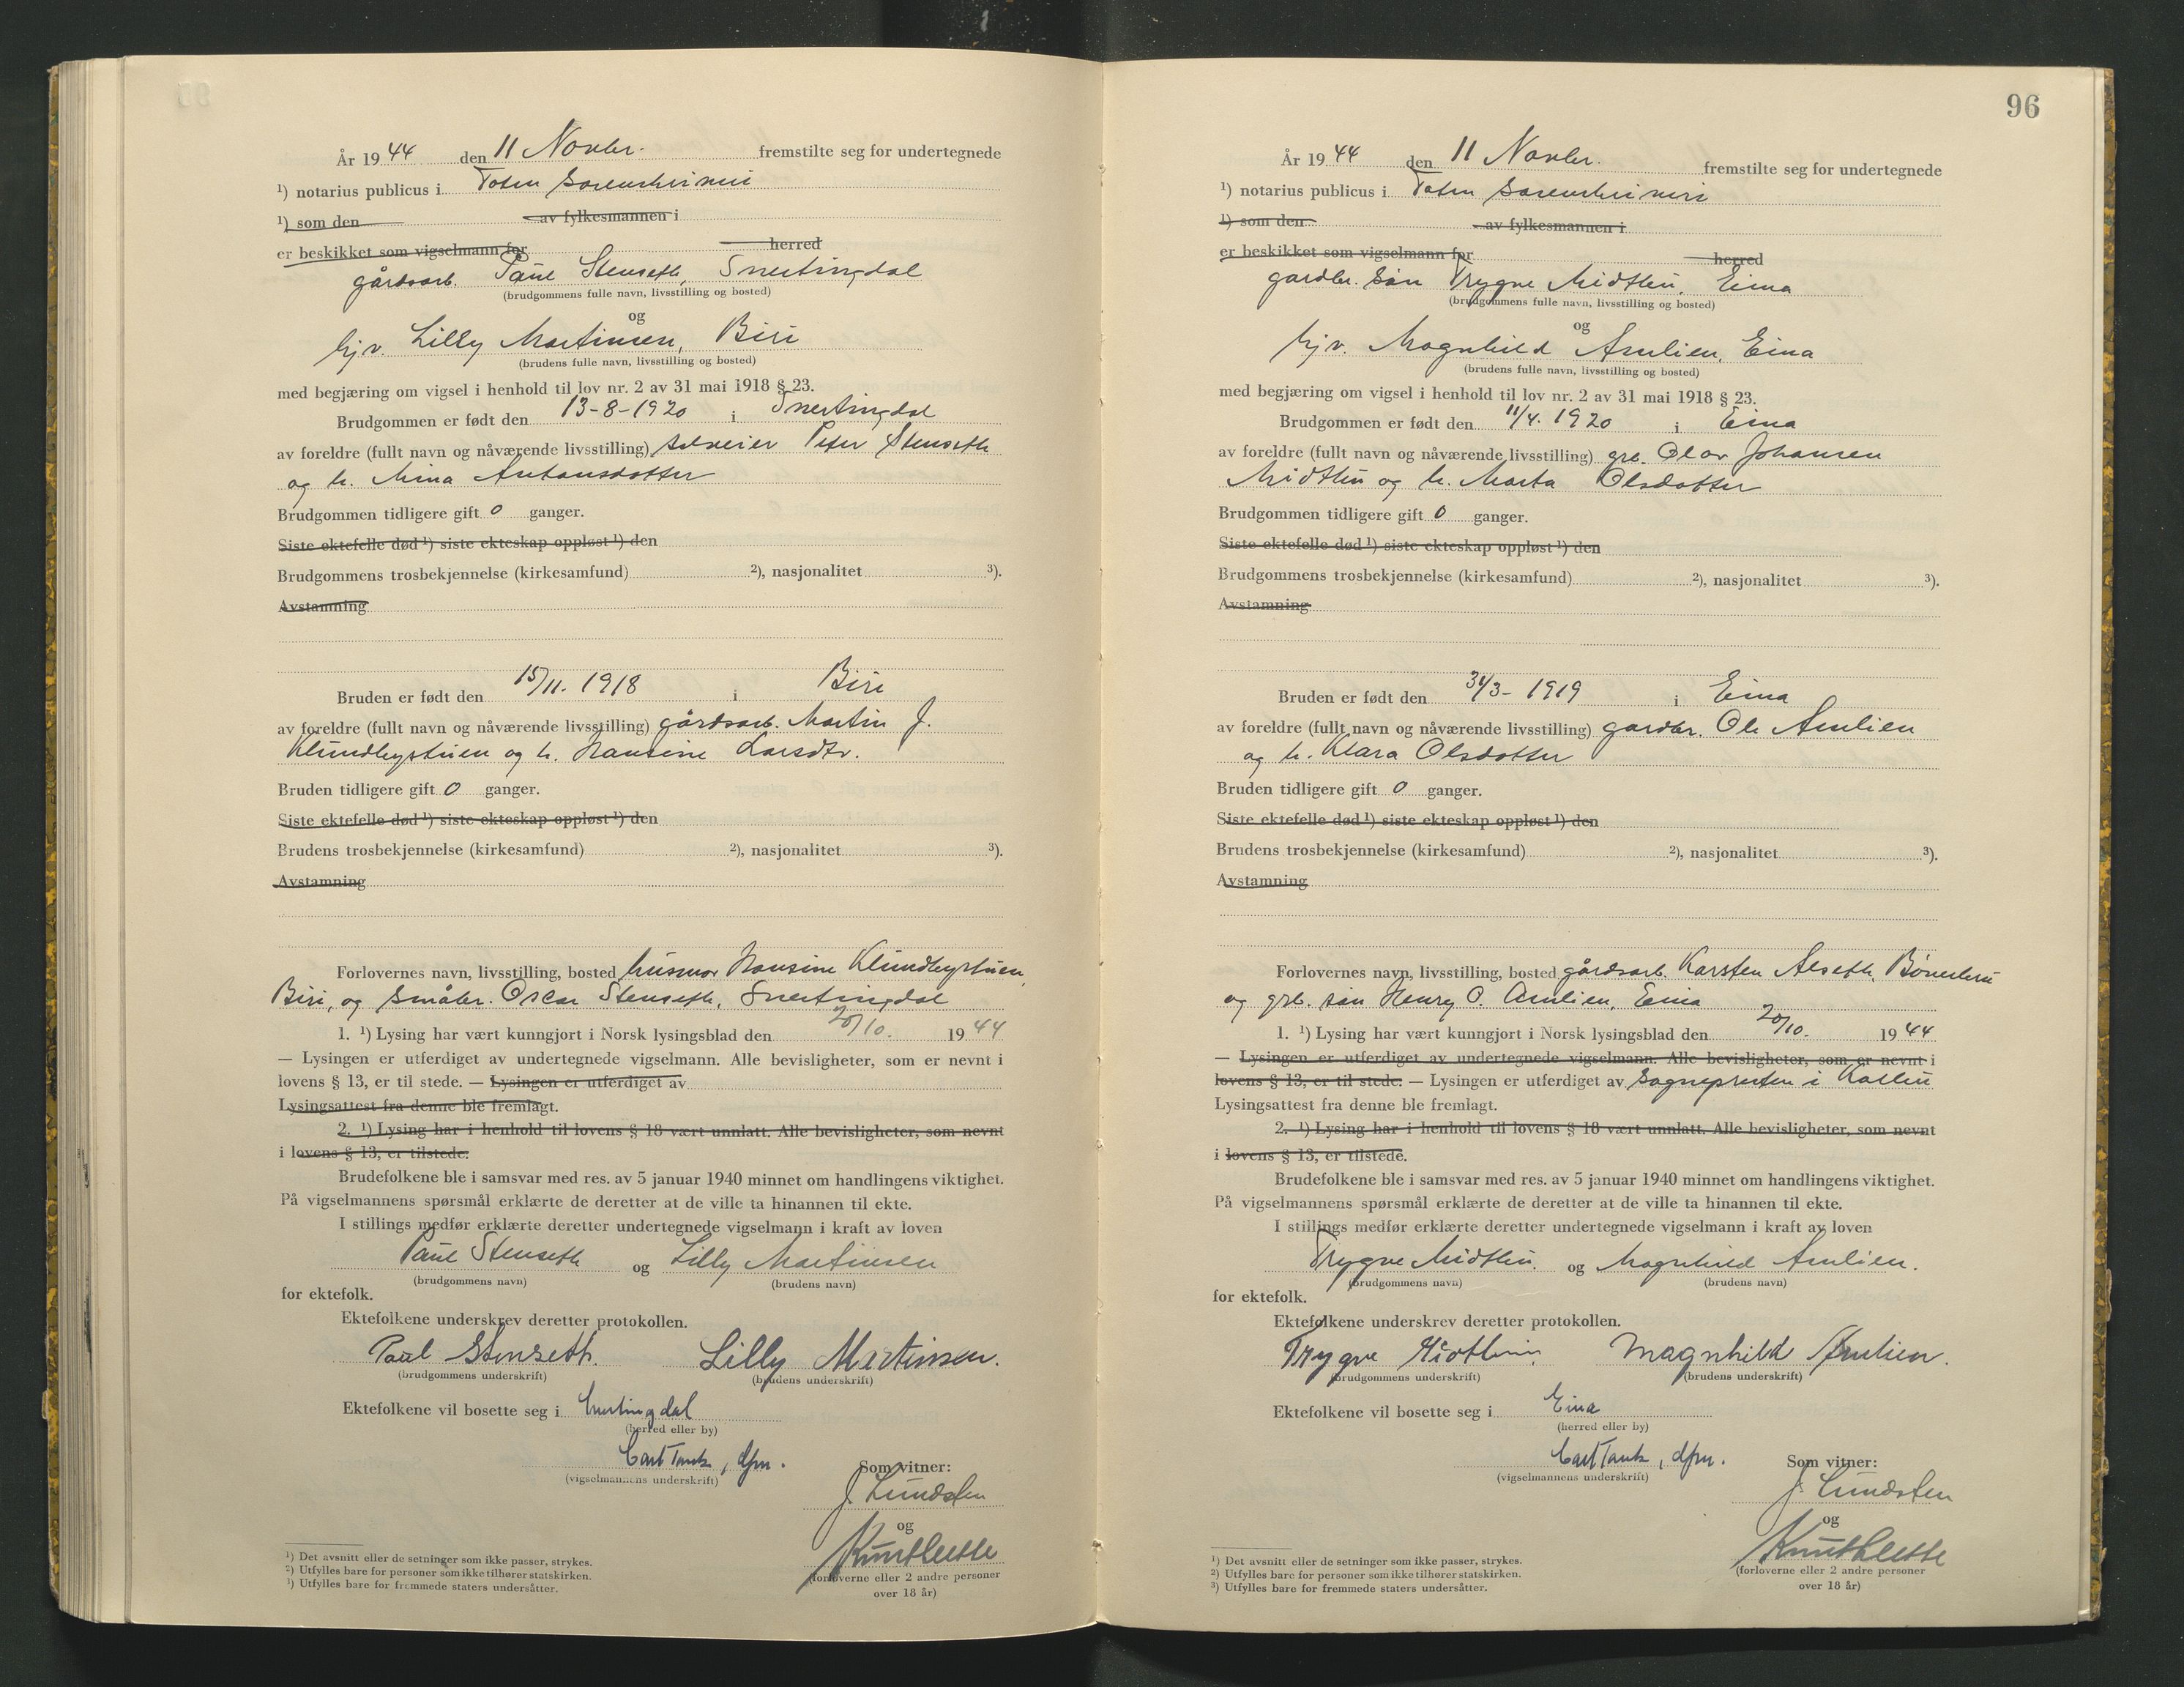 År 1944 den 11 Novbr. fremstilte seg for undertegnede
¹) notarius publicus i Toten Sorenskriveri
¹) som den av fylkesmannen i
er beskikket som vigselmann for herred
gårdsarb. Paul Stenseth, Snertingdal
(brudgommens fulle navn, livsstilling og bosted)
og
hjv. Lilly Martinsen, Biri
(brudens fulle navn, livsstilling og bosted)
med begjæring om vigsel i henhold til lov nr. 2 av 31 mai 1918 § 23.
Brudgommen er født den 13-8-1920 i Snertingdal
av foreldre (fullt navn og nåværende livsstilling) selveier Peter Stenseth
og h. Mina Antonsdotter
Brudgommen tidligere gift 0 ganger.
Siste ektefelle død ¹) siste ekteskap oppløst ¹) den
Brudgommens trosbekjennelse (kirkesamfund) ²), nasjonalitet ³).
Avstamning
Bruden er født den 15/11. 1918 i Biri
av foreldre (fullt navn og nåværende livsstilling) gårdsarb. Martin J.
Klundbystuen og h. Hansine Larsdtr.
Bruden tidligere gift 0 ganger.
Siste ektefelle død ¹) siste ekteskap oppløst ¹) den
Brudens trosbekjennelse (kirkesamfund) ²), nasjonalitet ³).
Avstamning
Forlovernes navn, livsstilling, bosted husmor Hansine Klundbystuen,
Biri, og småbr. Oscar Stenseth, Snertingdal
1. ¹) Lysing har vært kunngjort i Norsk lysingsblad den 20/10. 1944
— Lysingen er utferdiget av undertegnede vigselmann. Alle bevisligheter, som er nevnt i
lovens § 13, er til stede. — Lysingen er utferdiget av
Lysingsattest fra denne ble fremlagt.
2. ¹) Lysing har i henhold til lovens § 18 vært unnlatt. Alle bevisligheter, som nevnt
i lovens § 13, er tilstede.
Brudefolkene ble i samsvar med res. av 5 januar 1940 minnet om handlingens viktighet.
På vigselmannens spørsmål erklærte de deretter at de ville ta hinannen til ekte.
I stillings medfør erklærte deretter undertegnede vigselmann i kraft av loven
Paul Stenseth og Lilly Martinsen
(brudgommens navn) (brudens navn)
for ektefolk.
Ektefolkene underskrev deretter protokollen.
Paul Stenseth. Lilly Martinsen.
(brudgommens underskrift) (brudens underskrift)
Ektefolkene vil bosette seg i Snertingdal
(herred eller by)
Carl Tank, dfm.
(vigselmannens underskrift)
Som vitner:
J. Lundsten
og
(forloverne eller 2 andre personer
over 18 år)
¹) Det avsnitt eller de setninger som ikke passer, strykes.
²) Utfylles bare for personer som ikke tilhører statskirken.
³) Utfylles bare for fremmede staters undersåtter.
96
År 1944 den 11 Novbr. fremstilte seg for undertegnede
¹) notarius publicus i Toten Sorenskriveri
¹) som den av fylkesmannen i
er beskikket som vigselmann for herred
gardbr. søn Trygve Midtlien, Eina
(brudgommens fulle navn, livsstilling og bosted)
og
hjv. Magnhild Amlien, Eina
(brudens fulle navn, livsstilling og bosted)
med begjæring om vigsel i henhold til lov nr. 2 av 31 mai 1918 § 23.
Brudgommen er født den 11/4. 1920 i Eina
av foreldre (fullt navn og nåværende livsstilling) grb. Olav Johansen
Midtlien og h. Marta Olsdotter
Brudgommen tidligere gift 0 ganger.
Siste ektefelle død ¹) siste ekteskap oppløst ¹) den
Brudgommens trosbekjennelse (kirkesamfund) ²), nasjonalitet ³).
Avstamning
Bruden er født den 31/3- 1919 i Eina
av foreldre (fullt navn og nåværende livsstilling) gardbr. Ole Amlien
og h. Klara Olsdotter
Bruden tidligere gift 0 ganger.
Siste ektefelle død ¹) siste ekteskap oppløst ¹) den
Brudens trosbekjennelse (kirkesamfund) ²), nasjonalitet ³).
Avstamning
Forlovernes navn, livsstilling, bosted gårdsarb. Karsten Alseth,
og grb. søn Henry O. Amlien, Eina
1. ¹) Lysing har vært kunngjort i Norsk lysingsblad den 20/10. 1944
— Lysingen er utferdiget av undertegnede vigselmann. Alle bevisligheter, som er nevnt i
lovens § 13, er til stede. — Lysingen er utferdiget av Sogneprsten i Kolbu
Lysingsattest fra denne ble fremlagt.
2. ¹) Lysing har i henhold til lovens § 18 vært unnlatt. Alle bevisligheter, som nevnt
i lovens § 13, er tilstede.
Brudefolkene ble i samsvar med res. av 5 januar 1940 minnet om handlingens viktighet.
På vigselmannens spørsmål erklærte de deretter at de ville ta hinannen til ekte.
I stillings medfør erklærte deretter undertegnede vigselmann i kraft av loven
Trygve Midtlien. og Magnhild Amlien.
(brudgommens navn) (brudens navn)
for ektefolk.
Ektefolkene underskrev deretter protokollen.
Trygve Midtlien. Magnhild Amlien.
(brudgommens underskrift) (brudens underskrift)
Ektefolkene vil bosette seg i Eina
(herred eller by)
Carl Tank, dfm.
(vigselmannens underskrift)
Som vitner:
J. Lundsten
og
(forloverne eller 2 andre personer
over 18 år)
¹) Det avsnitt eller de setninger som ikke passer, strykes.
²) Utfylles bare for personer som ikke tilhører statskirken.
³) Utfylles bare for fremmede staters undersåtter.